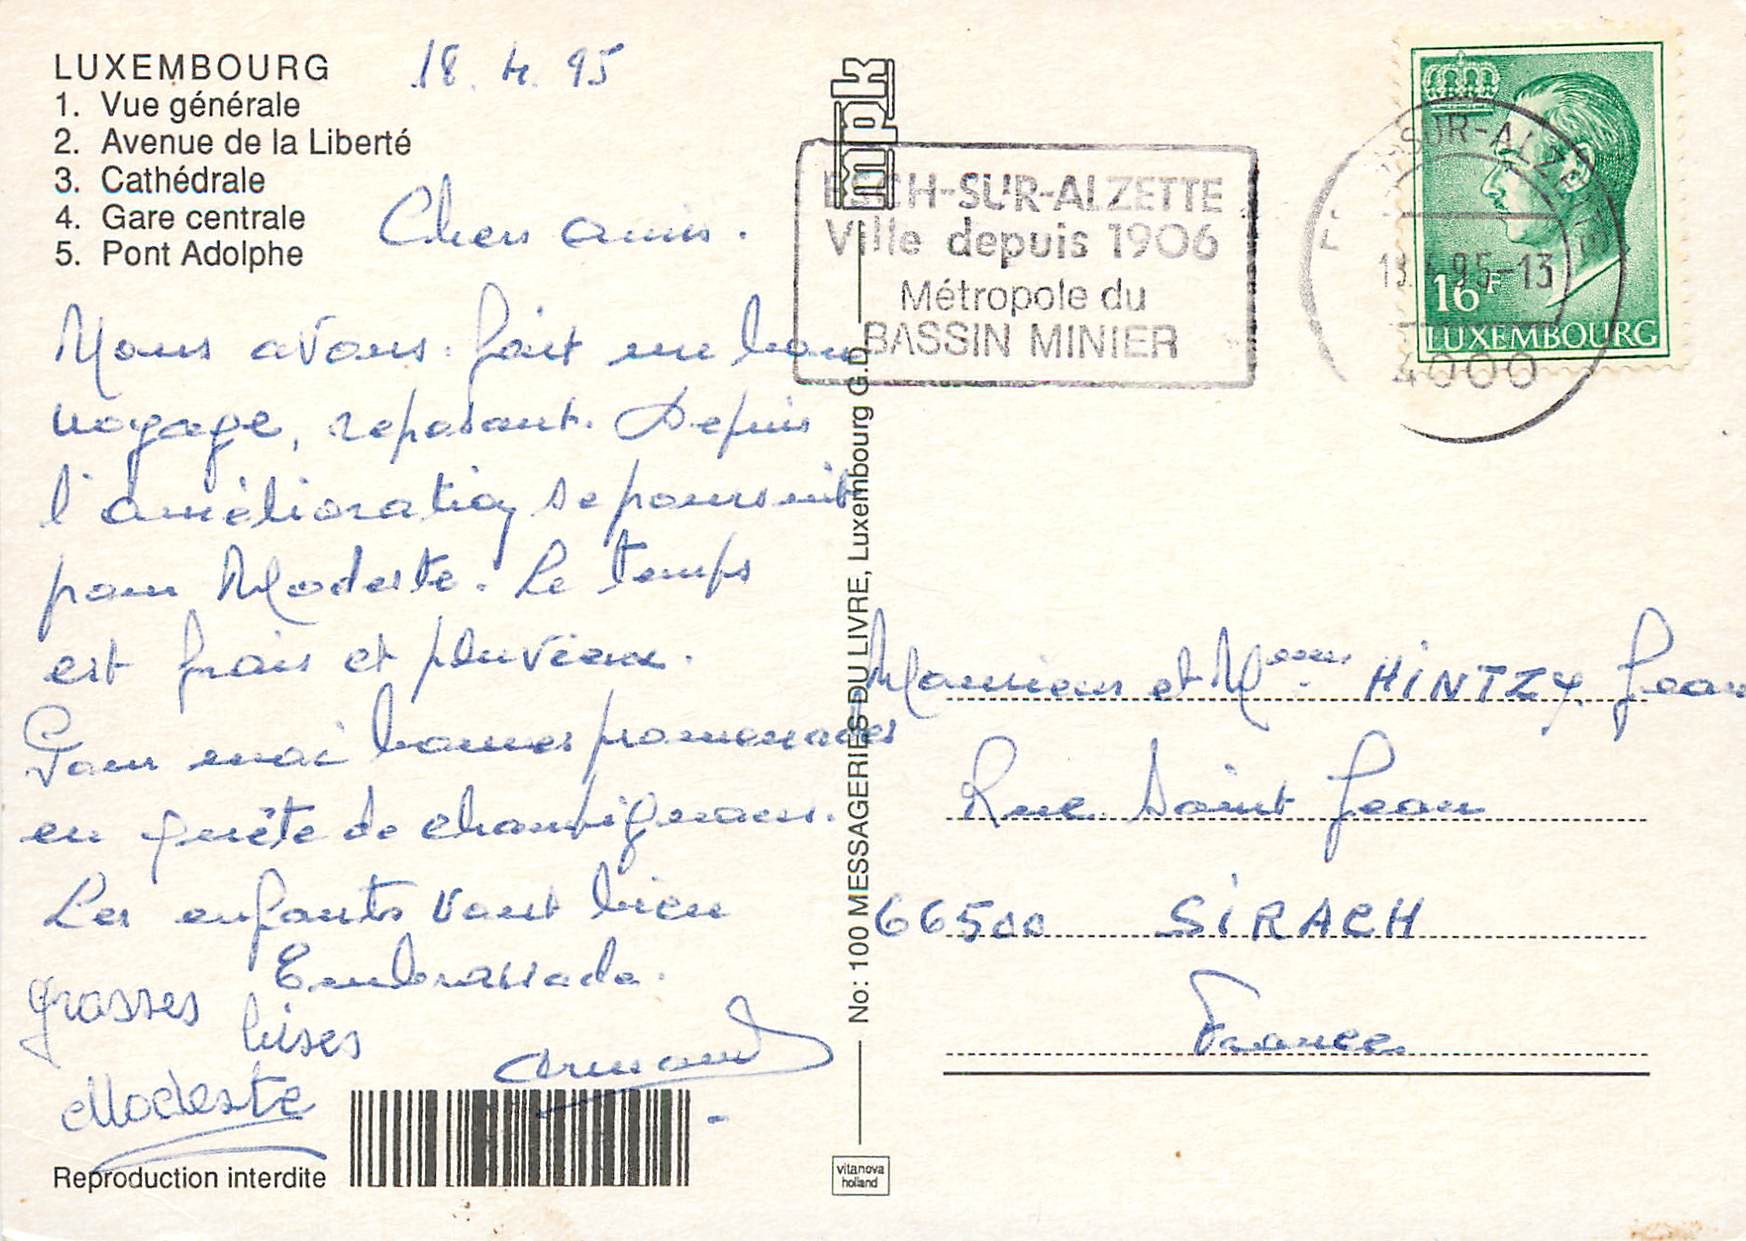 LUXEMBOURG
1. Vue générale
2. Avenue de la Liberté
3. Cathédrale
4. Gare centrale
5. Pont Adolphe
18. 4. 95
Chers amis.
Nous avons fait un bon
voyage, reposant. Depuis
l'amélioration se poursuit
pour Modeste. Le temps
est frais et pluvieux.
Pour moi bonnes promenades
en quête de champignons.
Les enfants vont bien
Embrassade.
grosses
bises
Modeste
Armand
Reproduction interdite
mpk
No: 100 MESSAGERIES DU LIVRE, Luxembourg G.D.
vitanova
holland
ESCH-SUR-ALZETTE
Ville depuis 1906
Métropole du
BASSIN MINIER
-SUR-ALZETTE
18.4.95-13
4000
16F
LUXEMBOURG
Monsieur et Mme HINTZY Jean
Rue Saint Jean
66500 SIRACH
France